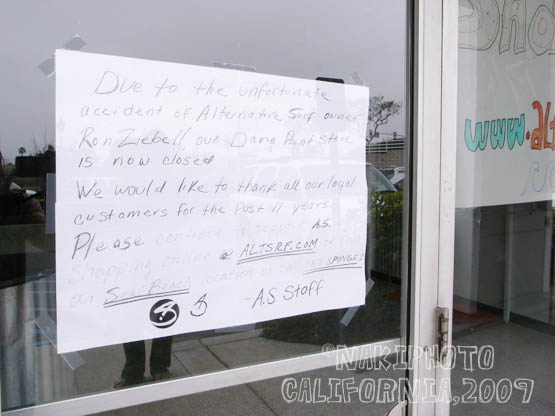 Due to the unfortunate
accident of Alternative Surf owner
Ron Ziebell, our Dana Point store
is now closed
We would like to thank all our loyal
customers for the past 11 years.
Please continue to support A.S.
Shopping online @ ALTSRF.COM
our Seal Beach location or call SPONGE1
-A.S. Staff
www.alt
©NAKIPHOTO
CALIFORNIA,2009